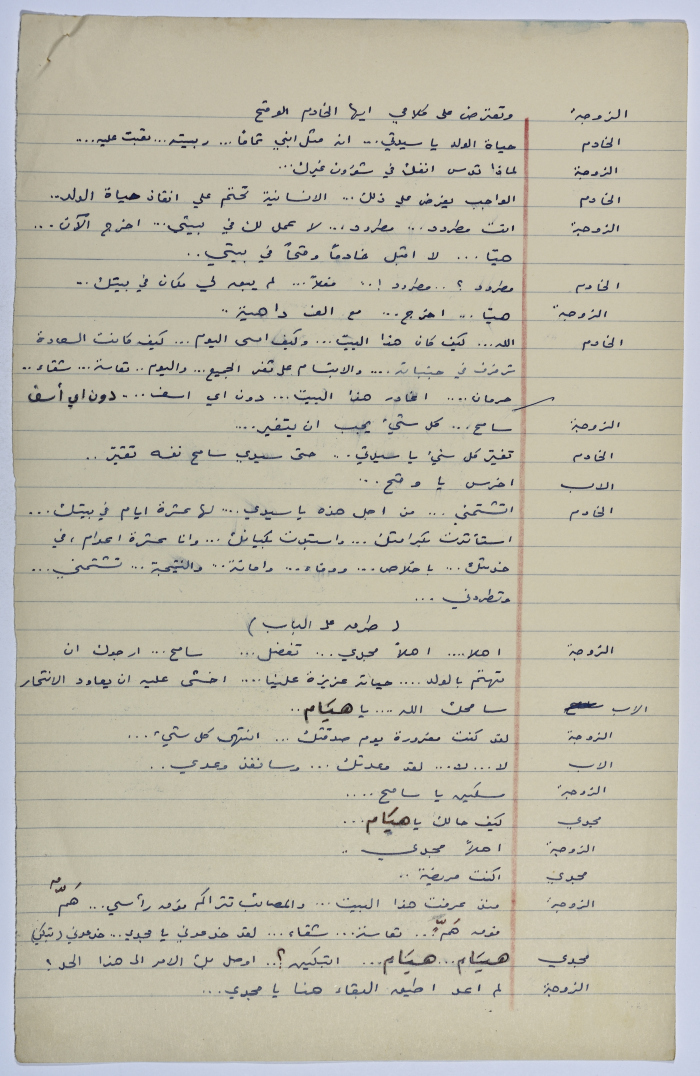 الزوجة وتعترض على كلامي ايها الخادم الوقح
الخادم حياة الولد يا سيدتي... انه مثل ابني تماماً... ربيته... تعبت عليه...
الزوجة لماذا تدس انفك في شؤون غيرك...
الخادم الواجب يفرض علي ذلك... الانسانية تحتم علي انقاذ حياة الولد...
الزوجة انت مطرود... مطرود... لا عمل لك في بيتي... اخرج الآن...
هيّا... لا اقبل خادماً وقحاً في بيتي..
الخادم مطرود؟.. مطرود!.. فعلاً... لم يبق لي مكان في بيتك...
الزوجة هيّا... اخرج... مع الف داهية..
الخادم الله... كيف كان هذا البيت... وكيف امسى اليوم... كيف كانت السعادة
ترفرف في جنباته.... والابتسام على ثغر الجميع... واليوم.. تعاسة... شقاء..
حرمان.... اغادر هذا البيت... دون اي اسف... دون اي أسف
الزوجة سامح... كل شيء يجب ان يتغير....
الخادم تغيّر كل شيء يا سيدتي... حتى سيدي سامح نفسه تغيّر..
الاب اخرس يا وقح...
الخادم اتشتمني... من اجل هذه يا سيدي... لها عشرة ايام في بيتك...
استأثرت بكرامتك... واستبدت بكيانك... وانا عشرة اعوام، في
خدمتك... باخلاص... ووفاء... وامانة... والنتيجة... تشتمني...
وتطردني...
(طرق على الباب)
الزوجة اهلا.... اهلاً مجدي... تفضل... سامح... ارجوك ان
تهتم بالولد.... حياته عزيزة علينا.... اخشى عليه ان يعاود الانتحار
الاب سامحك الله.... يا هيَام..
الزوجة لقد كنت مغرورة يوم صدقتك... انتهى كل شيء...
الاب لا... لا... لقد وعدتك... وسأنفذ وعدي..
الزوجة مسكين يا سامح....
مجدي كيف حالك يا هيَام...
الزوجة اهلاً مجدي..
مجدي اكنت مريضة..
الزوجة منذ عرفت هذا البيت... والمصائب تتراكم فوق رأسي... هَمٌّ
فوق هَمّ.. تعاسة... شقاء... لقد خدعوني يا مجدي... خدعوني (تبكي)
مجدي هيَام... هيَام... اتبكين؟.. اوصل بك الامر الى هذا الحد؟
الزوجة لم اعد اطيق البقاء هنا يا مجدي...